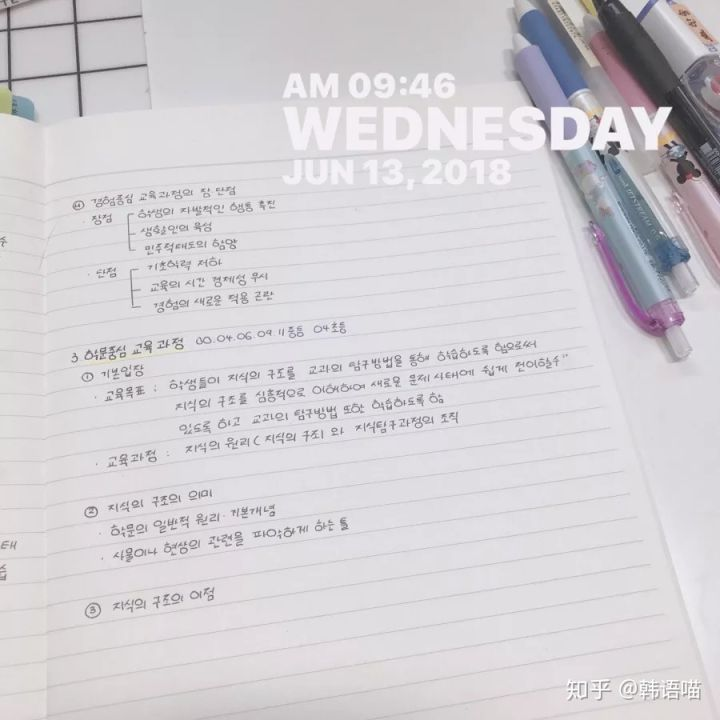 AM 09:46
WEDNESDAY
JUN 13, 2018
④ 경험중심 교육과정의 장·단점
· 장점
학생의 자발적인 행동 촉진
생활인의 육성
민주적태도의 함양
· 단점
기초학력 저하
교육의 시간 경제성 무시
경험의 새로운 적용 곤란
3. 학문중심 교육과정 00.04.06.09.11중등 04초등
① 기본입장
· 교육목표 : 학생들이 지식의 구조를 교과의 탐구방법을 통해 학습하도록 함으로써
지식의 구조를 심층적으로 이해하여 새로운 문제 사태에 쉽게 전이할수"
있도록 하고 교과의 탐구방법 또한 학습하도록 함
· 교육과정 : 지식의 원리(지식의 구조)와 지식탐구과정의 조직
② 지식의 구조의 의미
· 학문의 일반적 원리·기본개념
· 사물이나 현상의 관련을 파악하게 하는 틀
③ 지식의 구조의 이점
知乎 @韩语喵